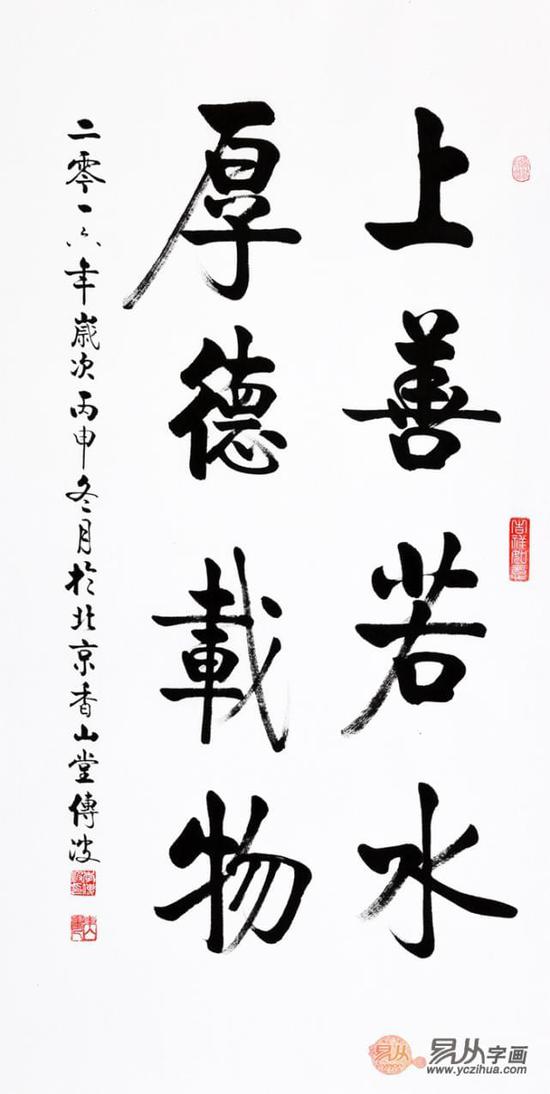 上善若水
厚德載物
二零一六年歲次丙申冬月於北京香山堂傳波
吉祥如意
易从
易从字画
www.yczihua.com